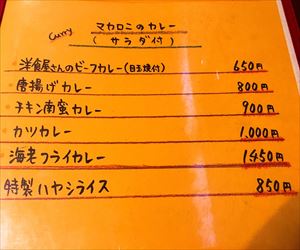 Curry
マカロニのカレー
(サラダ付)
洋食屋さんのビーフカレー(目玉焼付) 650円
唐揚げカレー 800円
チキン南蛮カレー 900円
カツカレー 1,000円
海老フライカレー 1450円
特製ハヤシライス 850円